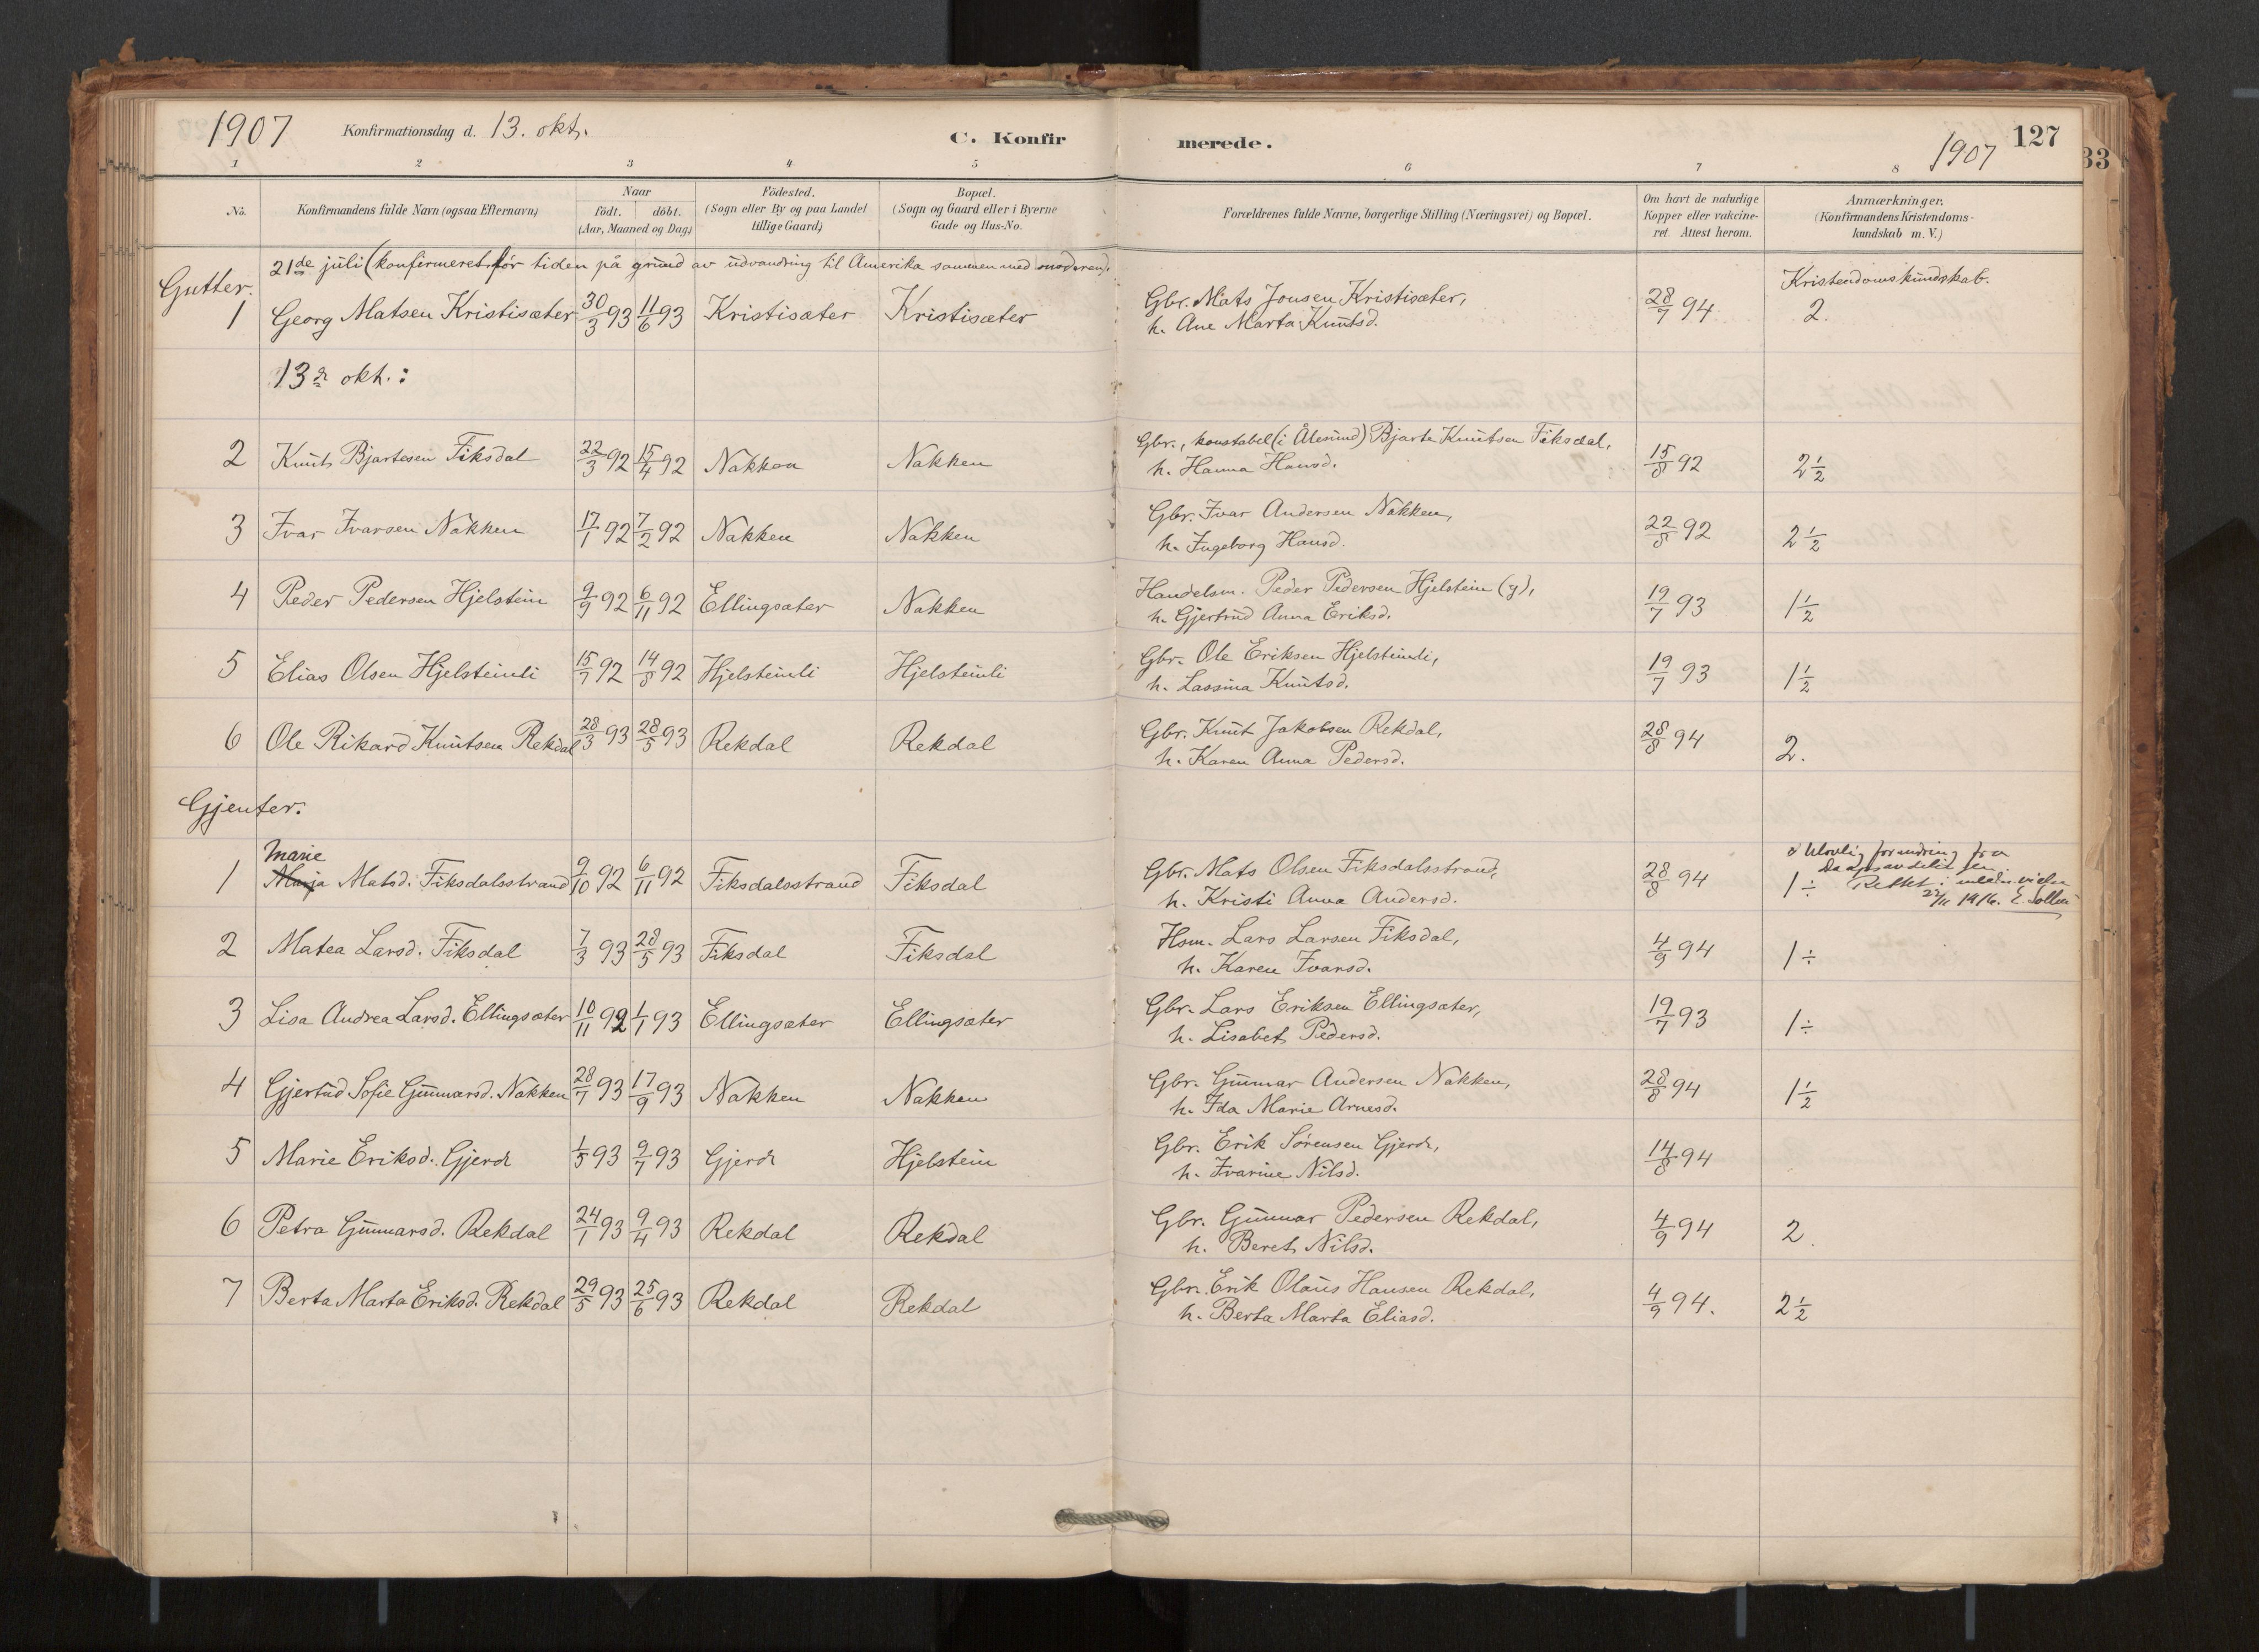 1907 Konfirmationsdag d. 13. okt. C. Konfir merede. 1907 127
33
1 2 3 4 5 6 7 8
No. Konfirmandens fulde Navn (ogsaa Efternavn) Naar födt. döbt. (Aar, Maaned og Dag) Födested. (Sogn eller By og paa Landet tillige Gaard) Bopæl. (Sogn og Gaard eller i Byerne Gade og Hus-No. Forældrenes fulde Navne, borgerlige Stilling (Næringsvei) og Bopæl. Om havt de naturlige Kopper eller vakcineret. Attest herom. Anmærkninger. (Konfirmandens Kristendomskundskab m. V.)
21de juli (konfirmeret før tiden på grund av udvandring til Amerika sammen med moderen).
Gutter. Kristendomskundskab.
1 Georg Matsen Kristisæter 30/3 93 11/6 93 Kristisæter Kristisæter Gbr. Mats Jonsen Kristisæter, 28/7 94 2.
h. Ane Marta Knutsd.
13de okt.:
2 Knut Bjartesen Fiksdal 22/3 92 15/4 92 Nakken Nakken Gbr., konstabel (i Ålesund) Bjarte Knutsen Fiksdal, 15/8 92 2½
h. Hanna Hansd.
3 Ivar Ivarsen Nakken 17/1 92 7/2 92 Nakken Nakken Gbr. Ivar Andersen Nakken, 22/8 92 2½
h. Ingeborg Hansd.
4 Peder Pedersen Hjelstein 9/9 92 6/11 92 Ellingsæter Nakken Handelsm. Peder Pedersen Hjelstein (g), 19/7 93 1½
h. Gjertrud Anna Eriksd.
5 Elias Olsen Hjelsteinli 15/7 92 14/8 92 Hjelsteinli Hjelsteinli Gbr. Ole Eriksen Hjelsteinli, 19/7 93 1½
h. Lassina Knutsd.
6 Ole Rikard Knutsen Rekdal 28/3 93 28/5 93 Rekdal Rekdal Gbr. Knut Jakobsen Rekdal, 28/8 94 2.
h. Karen Anna Pedersd.
Gjenter.
Marie
1 Marja Matsd. Fiksdalsstrand 9/10 92 6/11 92 Fiksdalsstrand Fiksdal Gbr. Mats Olsen Fiksdalsstrand, 28/8 94 1÷ Ulovlig forandring fra
h. Kristi Anna Andersd. Rettet i 27/11 1916.
2 Matea Larsd. Fiksdal 7/3 93 28/5 93 Fiksdal Fiksdal Hsm. Lars Larsen Fiksdal, 4/9 94 1÷
h. Karen Ivarsd.
3 Lisa Andrea Larsd. Ellingsæter 10/11 92 1/1 93 Ellingsæter Ellingsæter Gbr. Lars Eriksen Ellingsæter, 19/7 93 1÷
h. Lisabet Pedersd.
4 Gjertrud Sofie Gunnarsd. Nakken 28/7 93 17/9 93 Nakken Nakken Gbr. Gunnar Andersen Nakken, 28/8 94 1½
h. Ida Marie Arnesd.
5 Marie Eriksd. Gjerde 1/5 93 9/7 93 Gjerde Hjelstein Gbr. Erik Sørensen Gjerde, 14/8 94
h. Ivarine Nilsd.
6 Petra Gunnarsd. Rekdal 24/1 93 9/4 93 Rekdal Rekdal Gbr. Gunnar Pedersen Rekdal, 4/9 94 2.
h. Beret Nilsd.
7 Berta Marta Eriksd. Rekdal 29/5 93 25/6 93 Rekdal Rekdal Gbr. Erik Olaus Hansen Rekdal, 4/9 94. 2½
h. Berta Marta Eliasd.